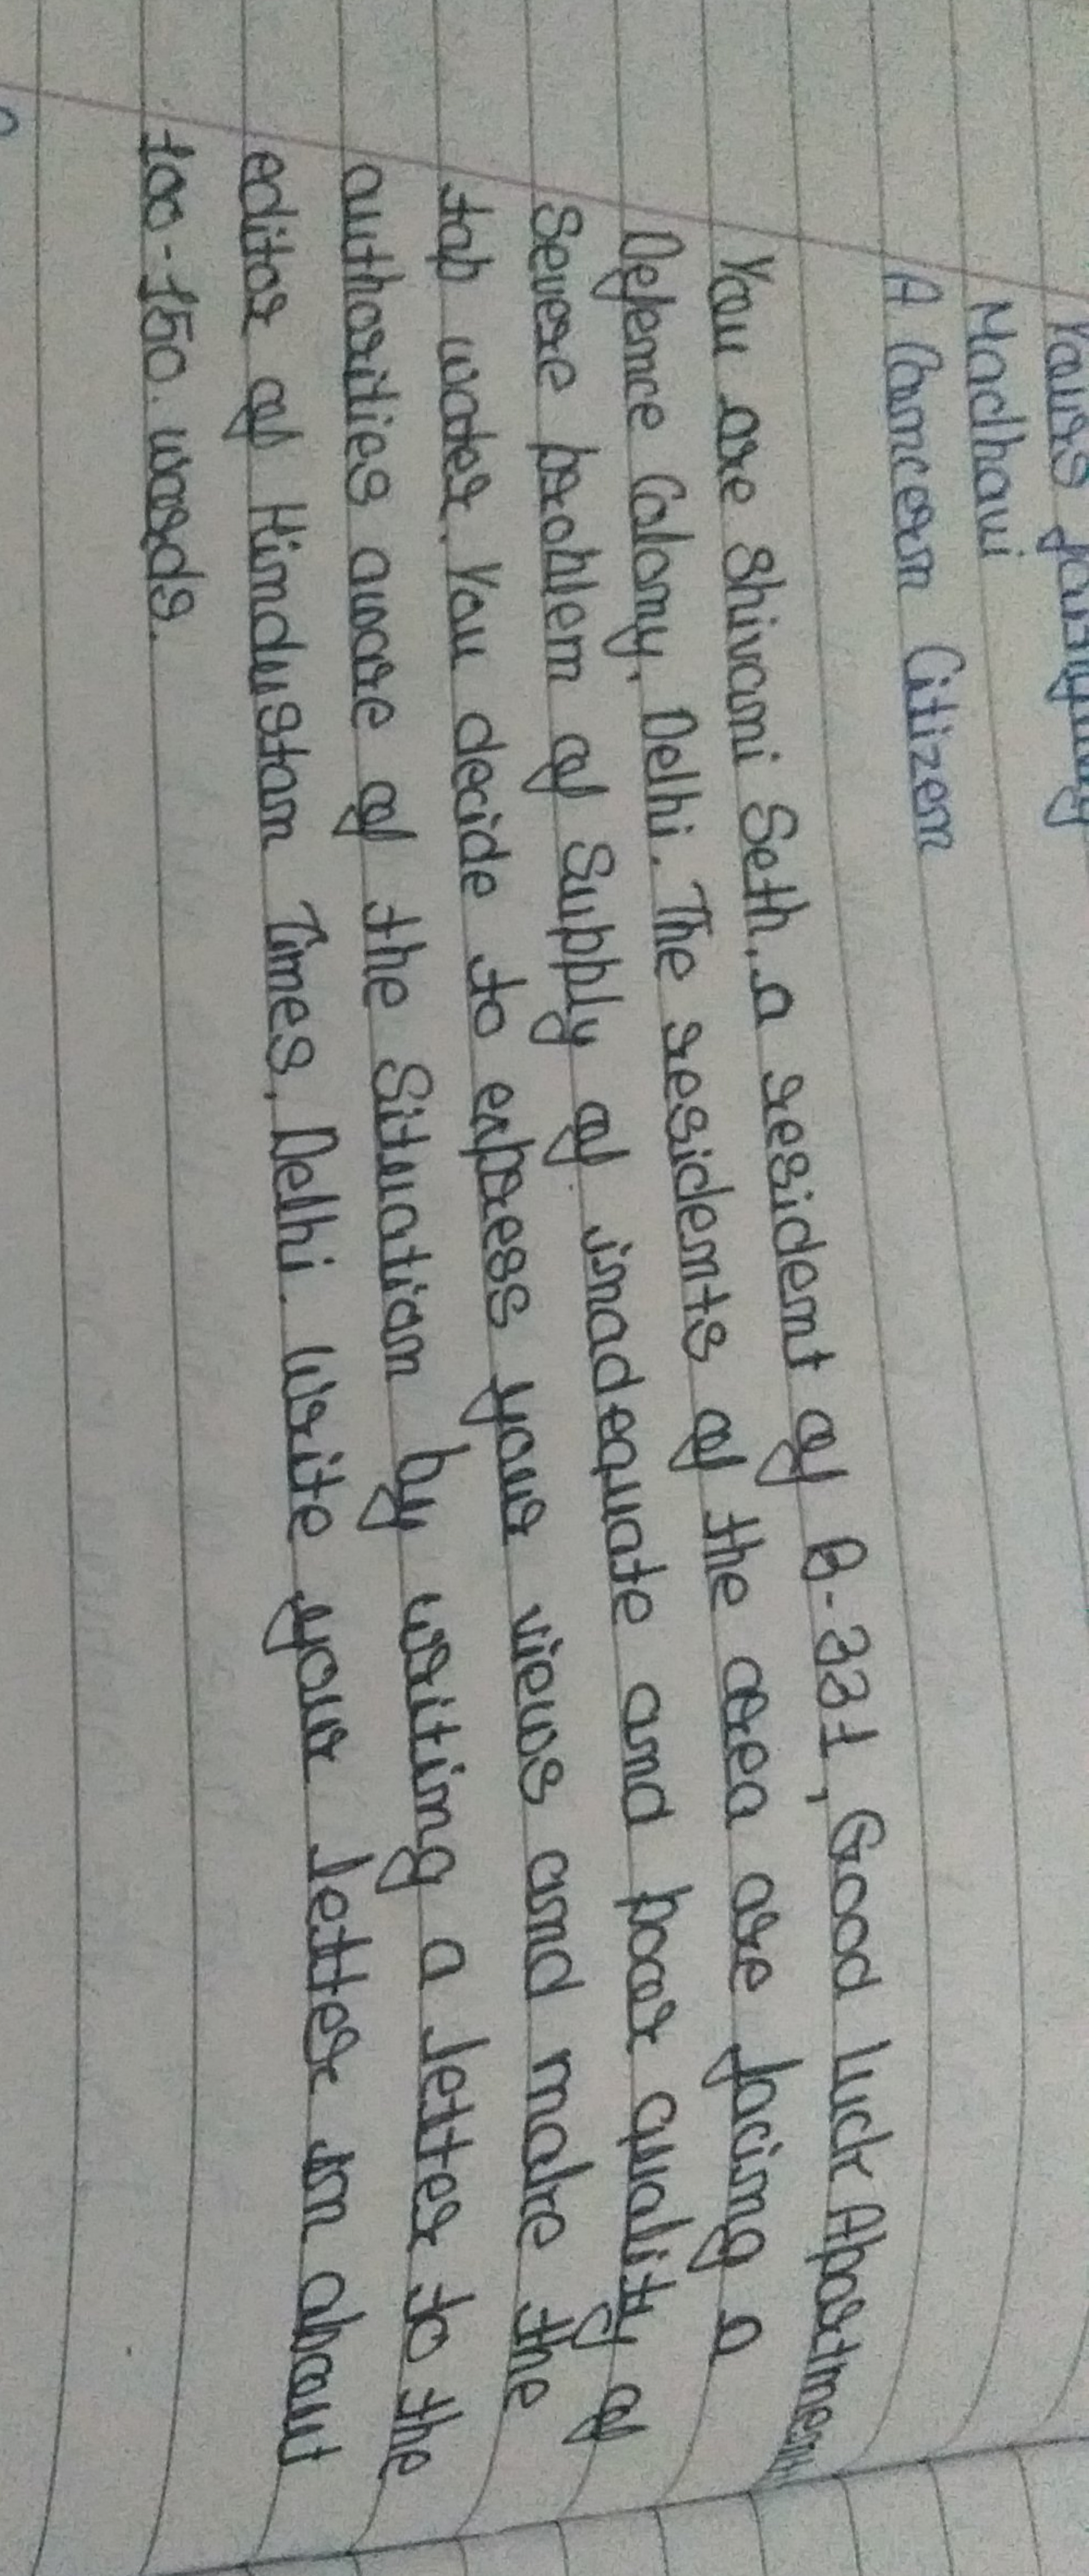 Yours
Madhavi
A Concern Citizen
You are Shivani Seth, a resident of B-331, Good luck Apartment
Defence Colony, Delhi. The residents of the area are facing a
severe problem of Supply of inadequate and poor quality of
tap water. You decide to express your views and make the
authorities aware of the situation by writing a letter to the
editor of Hindustan Times, Delhi. Write your letter in about
100-150. words.